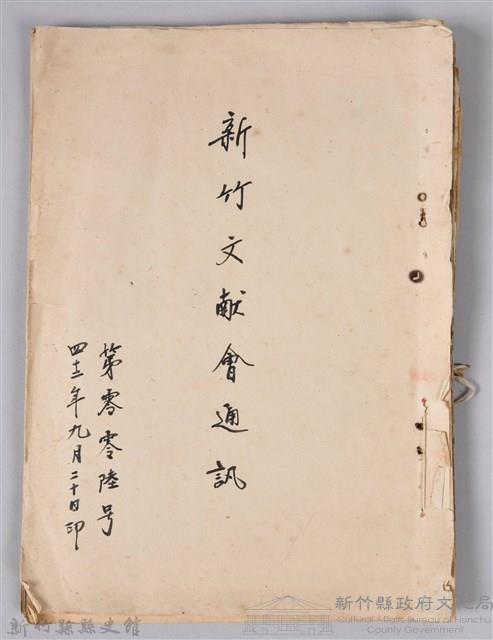 新竹文献會通訊
第零零陸号
四十二年九月二十日印
新竹縣縣史館
新竹縣政府文化局
Cultural Affairs Bureau of Hsinchu
County Government